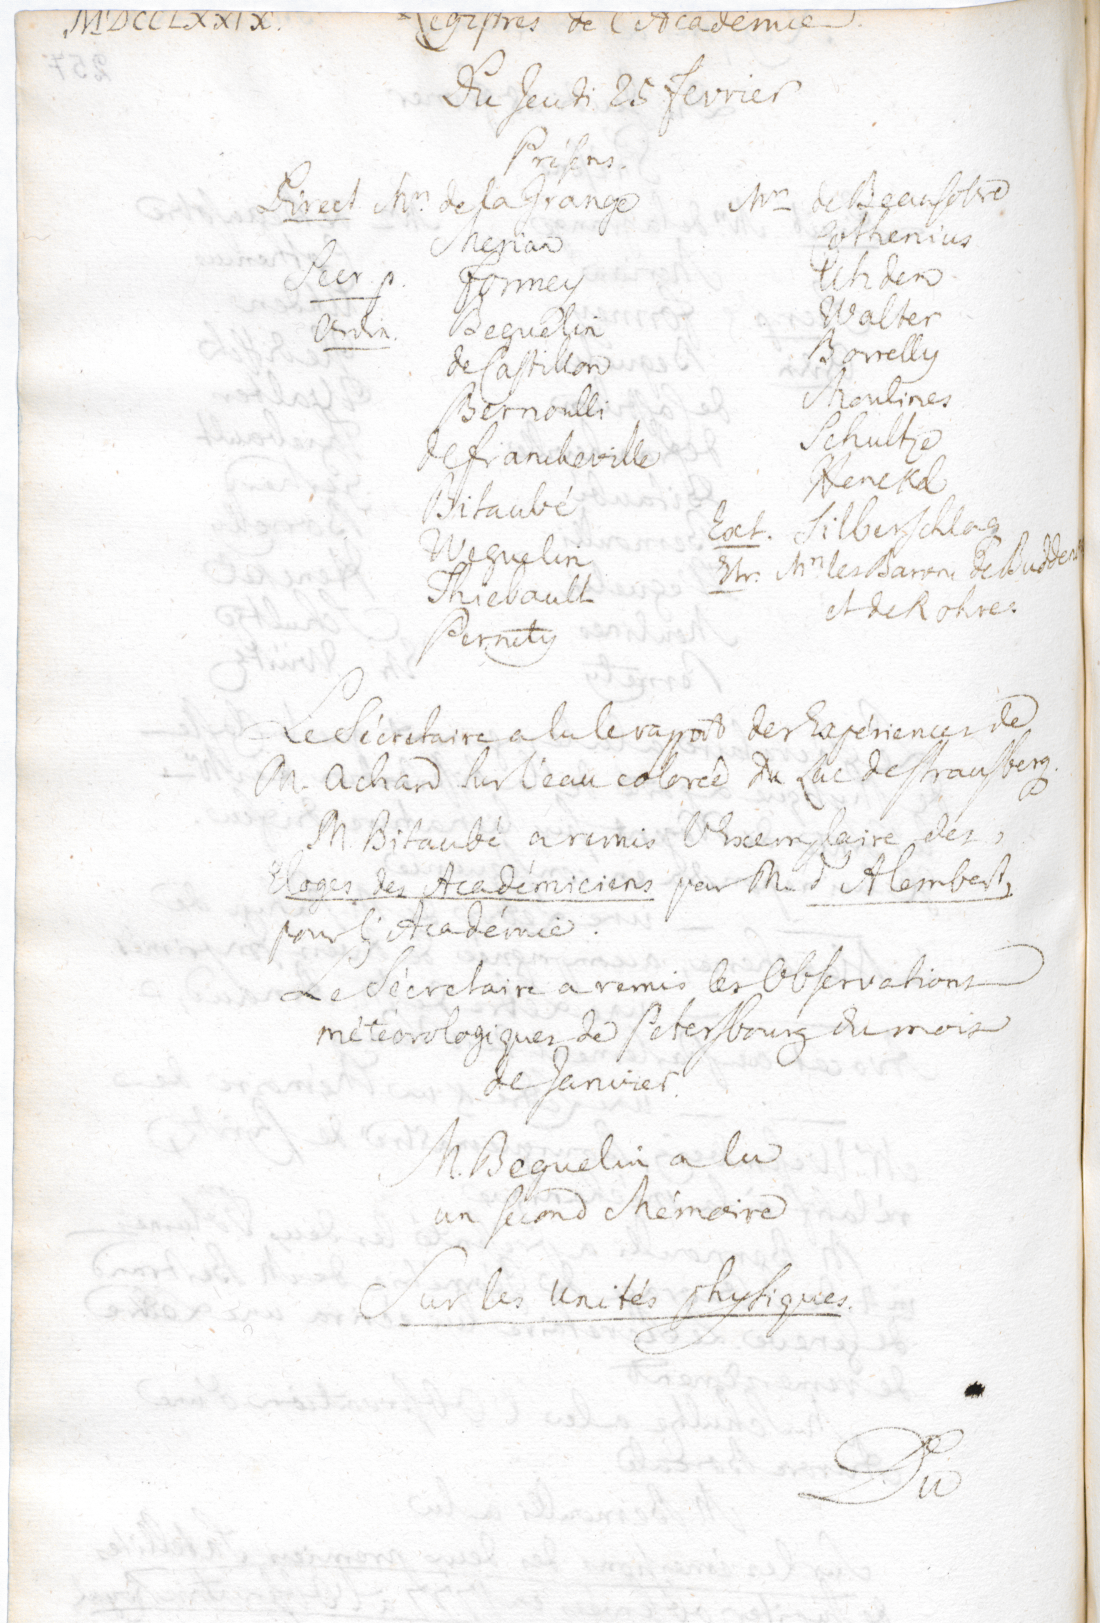 MDCCLXXIX. Registres de l'Academie.
Du Jeudi 25 Fevrier
Présens.
Direct Mrs. de la Grange
Merian
Secr. p. Formey
Ordin. Beguelin
de Castillon
Bernoulli
de Francheville
Bitaubé
Weguelin
Thiebault
Pernety
Mrs de Beausobre
Cothenius
Uhden
Walter
Borrelly
Moulines
Schultze
Henckel
Ext. Silberschlag
Etr. Mrs les Barons de Budden
et de Rohres
Le Sécretaire a lu le rapport des Expériences de
M. Achard sur l'eau colorée du Lac de Strausberg.
M. Bitaubé a remis l'Exemplaire des
Eloges des Académiciens par M. d'Alembert,
pour l'Académie.
Le Sécretaire a remis les Observations
météorologiques de Petersbourg du mois
de Janvier.
M. Beguelin a lu
un second Mémoire
Sur les unités physiques.
Du